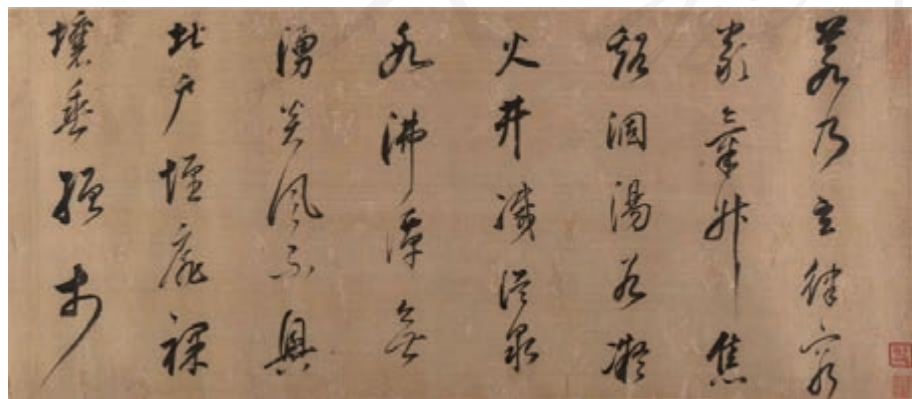 若乃玄律窮
嚴氣升焦
谿涸湯谷凝
火井滅温泉
冰沸潭無
湧炎風不興
北户墐扉裸
壤垂繒於